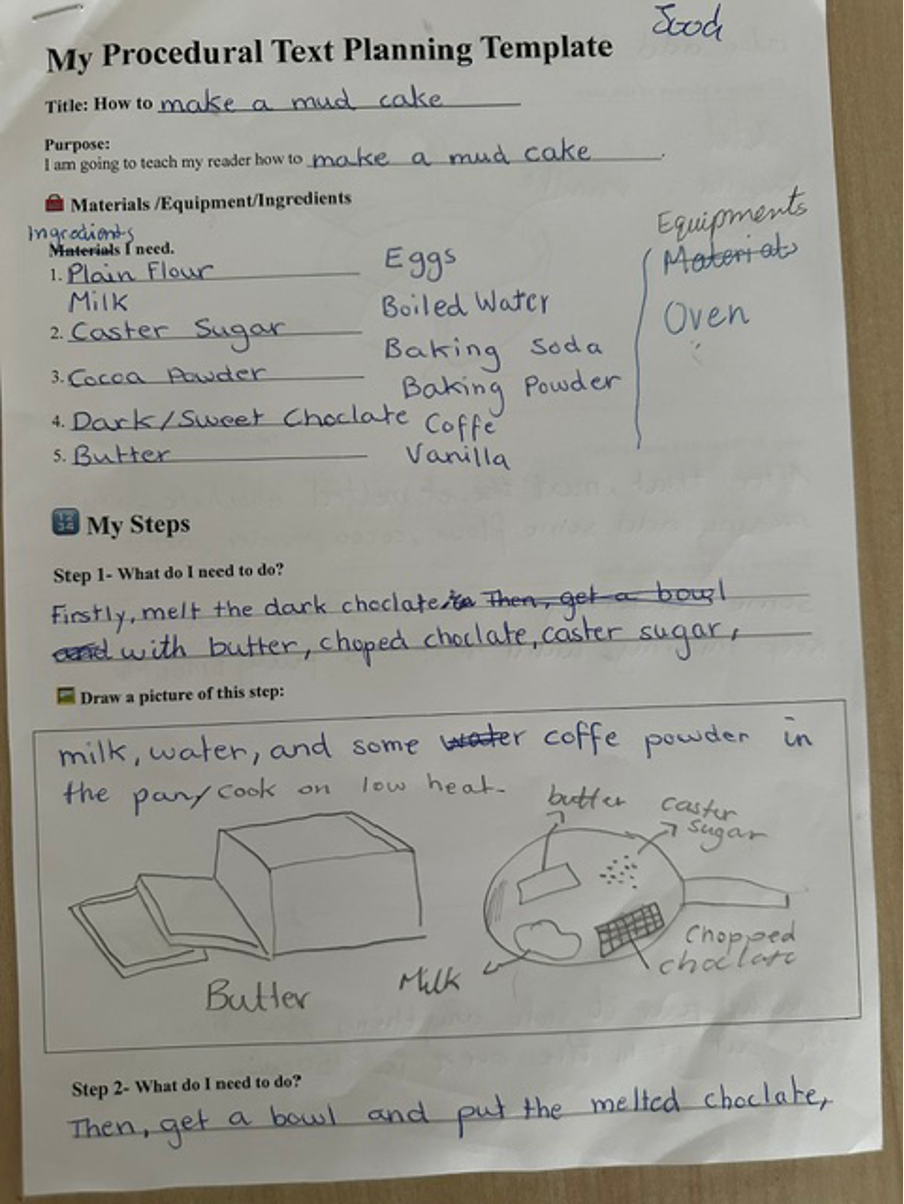 Jood
My Procedural Text Planning Template
Title: How to make a mud cake
Purpose:
I am going to teach my reader how to make a mud cake.
Materials /Equipment/Ingredients
Ingredients
Materials I need.
1. Plain Flour
Milk
2. Caster Sugar
3. Cocoa Powder
4. Dark/Sweet Choclate
5. Butter
Eggs
Boiled Water
Baking Soda
Baking Powder
Coffe
Vanilla
Equipments
Materials
Oven
My Steps
Step 1- What do I need to do?
Firstly, melt the dark choclate Then, get a bowl
and with butter, choped choclate, caster sugar,
Draw a picture of this step:
milk, water, and some water coffe powder in
the pan/cook on low heat.
butter
caster
sugar
Chopped
choclate
Milk
Butter
Step 2- What do I need to do?
Then, get a bowl and put the melted choclate,